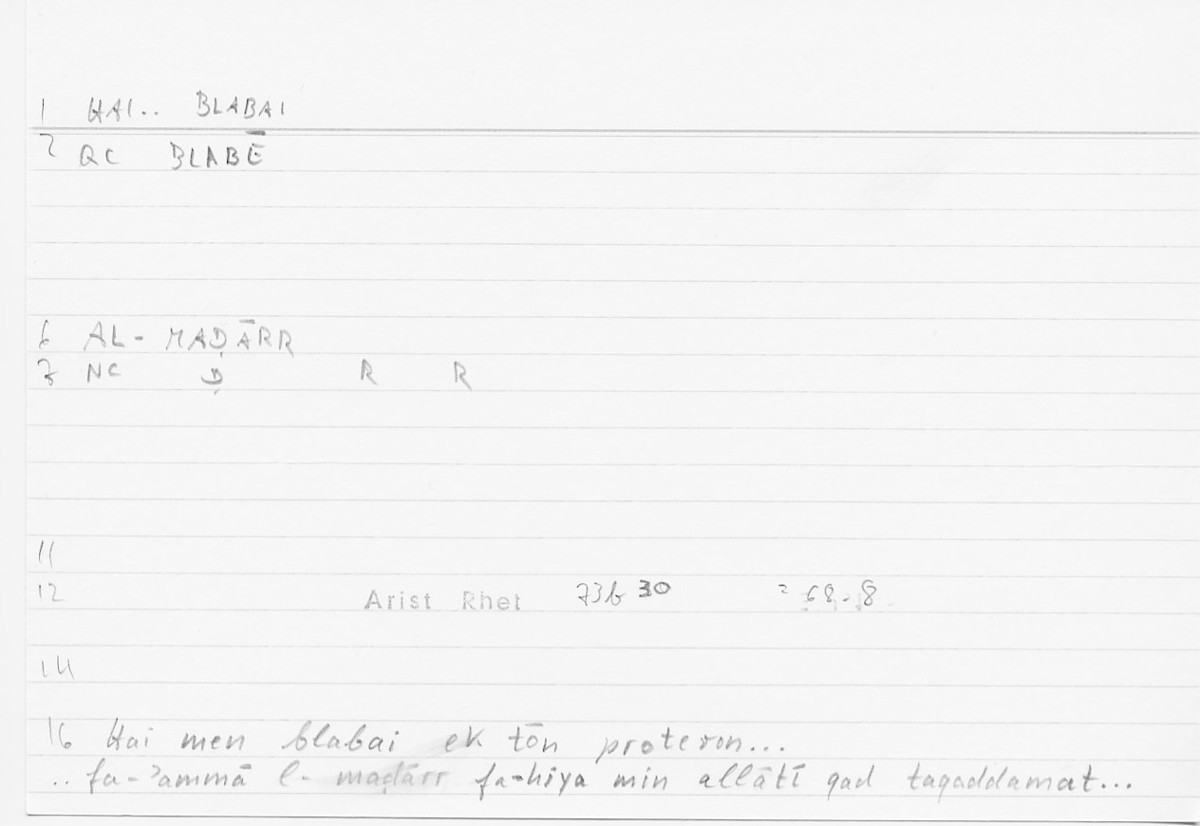 1 HAI.. BLABAI
2 QC BLABĒ
6 AL-MAḌĀRR
7 NC Ḍ R R
11
12 Arist Rhet 73b30 = 68.8
14
16 Hai men blabai ek tōn proteron...
.. fa-ʾammā l-maḍārr fa-hiya min allātī qad taqaddamat...